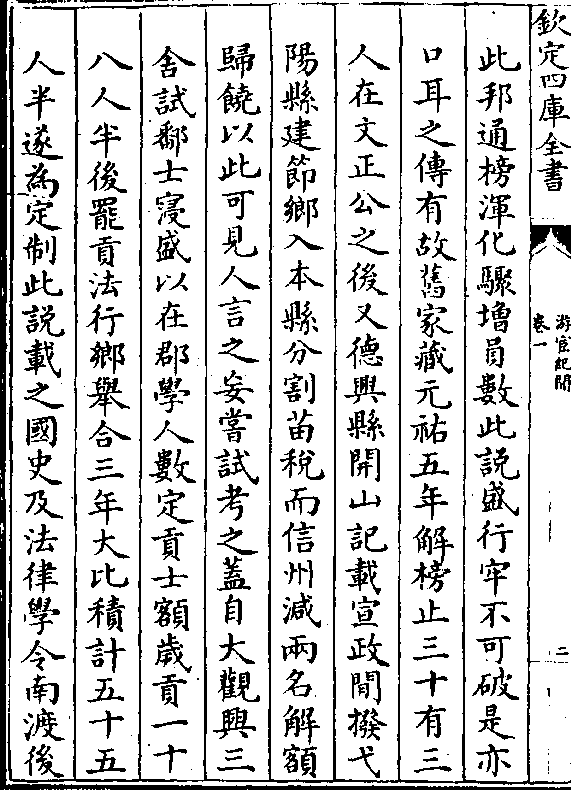 欽定四庫全書
游宦紀聞
卷一
二
此邦通榜渾化驟増員數此説盛行牢不可破是亦
口耳之傳有故舊家藏元祐五年解榜止三十有三
人在文正公之後又德興縣開山記載宣政間撥弋
陽縣建節鄉入本縣分割苗稅而信州減兩名解額
歸饒以此可見人言之妄嘗試考之葢自大觀興三
舍試鄱士寖盛以在郡學人數定貢士額歲貢一十
八人半後罷貢法行鄉舉合三年大比積計五十五
人半遂為定制此説載之國史及法律學令南渡後